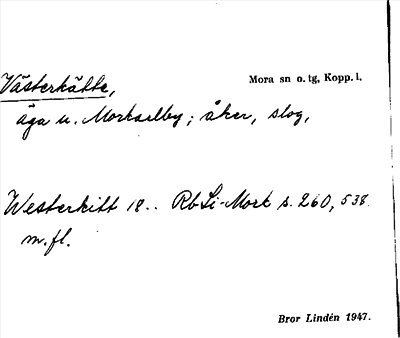 Västerkätte,
Mora sn o. tg, Kopp. l.
äga u. Morkarlby; åker, slog,
Westerkitt 18.. Rb Li-Mork s. 260, 538
m.fl.
Bror Lindén 1947.